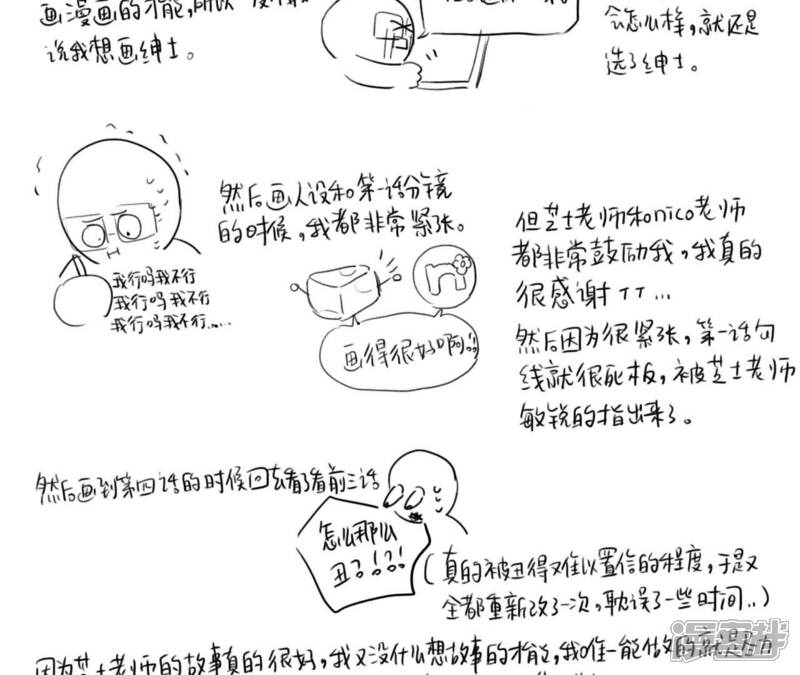 画漫画的才能,所以一度
说我想画绅士。
会怎么样,就还是
选了绅士。
然后画人设和第一话分镜
的时候,我都非常紧张。
我行吗我不行
我行吗我不行
我行吗我不行……
n
画得很好啊!!
但芝士老师和nico老师
都非常鼓励我,我真的
很感谢TT...
然后因为很紧张,第一话勾
线就很死板,被芝士老师
敏锐的指出来了。
然后画到第四话的时候回去看了看前三话
怎么那么
丑?!?!
(真的被丑得难以置信的程度,于是又
全都重新改了一次,耽误了一些时间..)
因为芝士老师的故事真的很好,我又没什么想故事的才能,我唯一能做的就是努力
漫塞栈